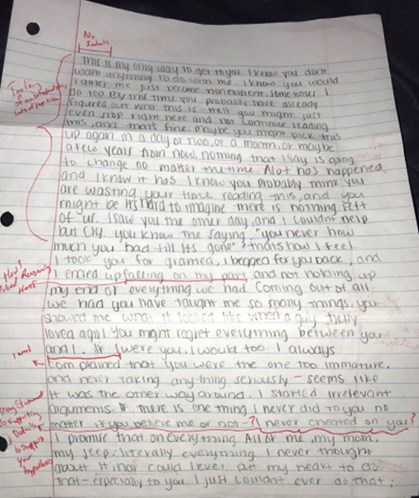 No
Indents
This is my only way to get to you I know you don't
want anything to do with me. I know you would
rather me just become nonexistent, sometimes I
do too. By this time you probably have already
figured out who this is. Hell you might just
even stop right here and not continue reading
this, and thats fine maybe you might pick this
up again in a day or two, or a month, or maybe
a few years from now, nothing that I say is going
to change no matter the time. A lot has happened,
and I know it has. I know you probably think you
are wasting your time reading this, and you
might be. Its hard to imagine there is nothing left
of us. I saw you the other day, and I couldn't help
but cry. you know the saying, "you never how
much you had till its gone" thats how I feel.
I took you for granted, I begged for you back, and
I ended up failing on my part, and not holding up
my end of everything we had. Coming out of all
we had you have taught me so many things, you
showed me what it looked like when a guy truly
loved a girl. You might regret everything between you
and I. If I were you, I would too. I always
complained that you were the one too immature,
and never taking anything seriously - seems like
it was the other way around. I started irrelevant
arguments. If there is one thing I never did to you no
matter if you believe me or not - I never cheated on you?
I promise that on everything. All of me, my mom,
my jeep, literally everything. I never thought
about it nor could I ever put my heart to do
that - especially to you. I just couldn't ever do that,